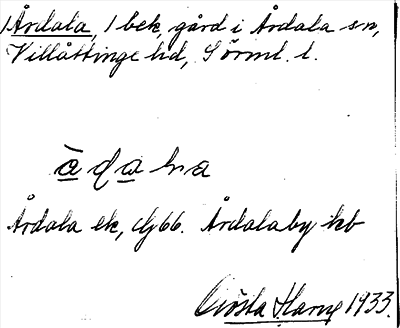 1 Årdala, 1 bek, gård i Årdala sn,
Villåttinge hd, Sörml. l.
Årdala ek, dj 66. Årdalaby kb
Gösta Harne 1933.